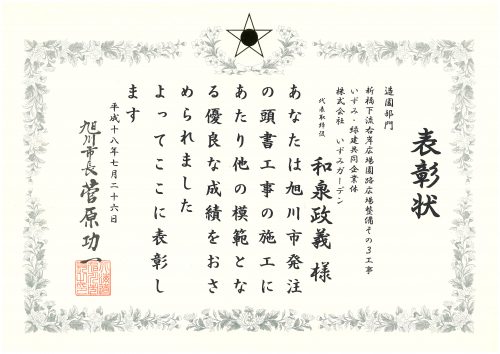 表彰状
造園部門
新橋下流右岸広場園路広場整備その3工事
いずみ・緑建共同企業体
株式会社 いずみガーデン
代表取締役
和泉政義 様
あなたは旭川市発注
の頭書工事の施工に
あたり他の模範とな
る優良な成績をおさ
められました
よってここに表彰し
ます
平成十八年七月二十六日
旭川市長 菅原功一